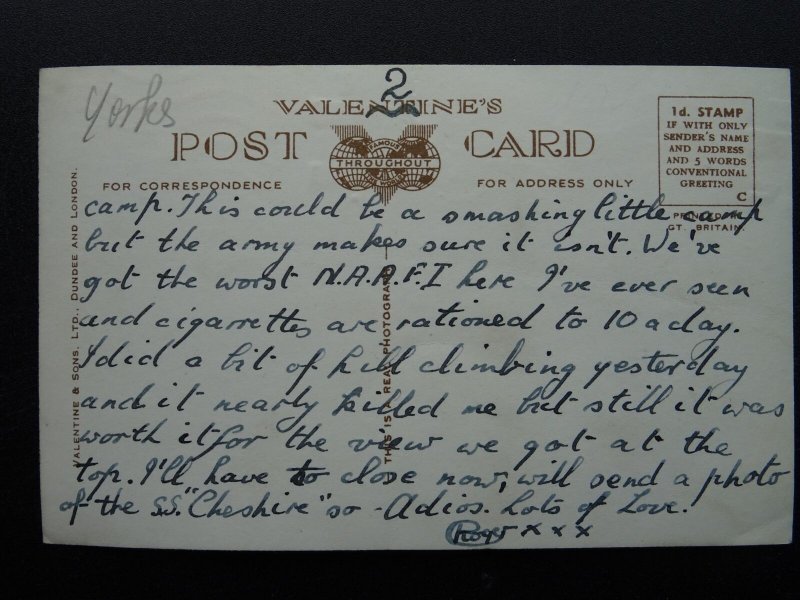 Yorks
2
VALENTINE'S
POST CARD
FAMOUS
THROUGHOUT
THE WORLD
FOR CORRESPONDENCE
FOR ADDRESS ONLY
1d. STAMP
IF WITH ONLY
SENDER'S NAME
AND ADDRESS
AND 5 WORDS
CONVENTIONAL
GREETING
C
PRINTED IN
GT. BRITAIN.
VALENTINE & SONS. LTD., DUNDEE AND LONDON.
THIS IS A REAL PHOTOGRAPH
camp. This could be a smashing little camp
but the army makes sure it isn't. We've
got the worst N.A.A.F.I here I've ever seen
and cigarrettes are rationed to 10 a day.
I did a bit of hill climbing yesterday
and it nearly killed me but still it was
worth it for the view we got at the
top. I'll have to close now, will send a photo
of the S.S. "Cheshire" so - Adios. Lots of Love.
Roger x x x